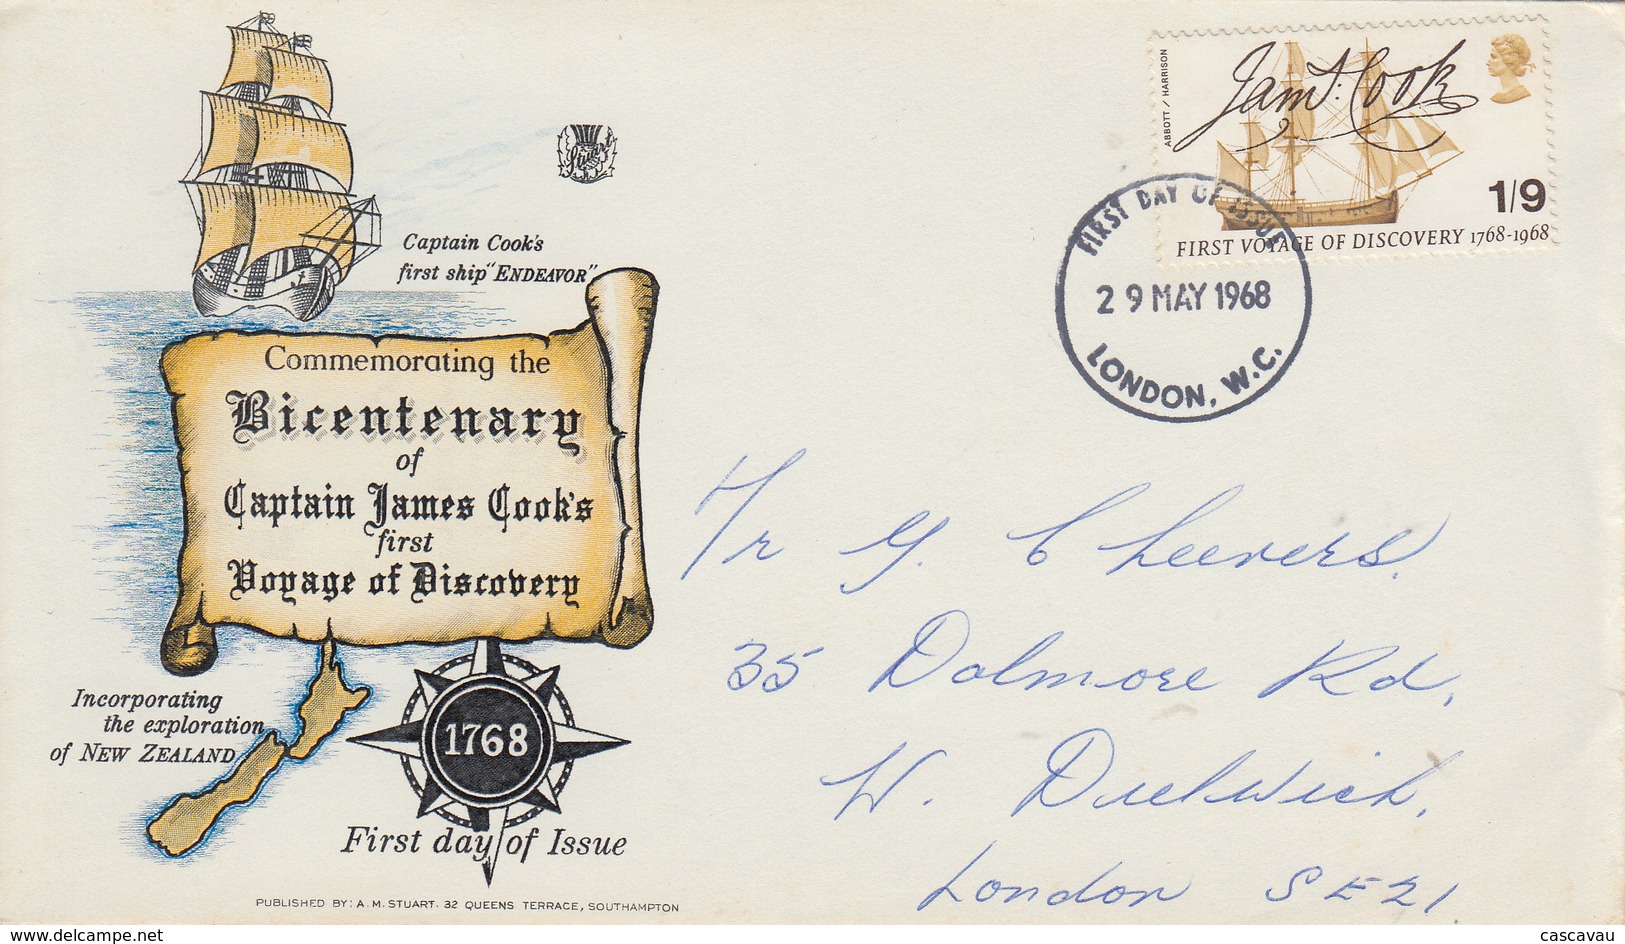 Jam.s Cook
ABBOTT / HARRISON
1/9
FIRST VOYAGE OF DISCOVERY 1768-1968
FIRST DAY OF ISSUE
29 MAY 1968
LONDON, W.C.
Stuart
Captain Cook's
first ship "ENDEAVOR"
Commemorating the
Bicentenary
of
Captain James Cook's
first
Voyage of Discovery
Incorporating
the exploration
of NEW ZEALAND
1768
First day of Issue
PUBLISHED BY: A. M. STUART. 32 QUEENS TERRACE, SOUTHAMPTON
Mr G. Cheevers.
35 Dolmore Rd,
W. Duelwich,
London SE21.
www.delcampe.net
cascavau